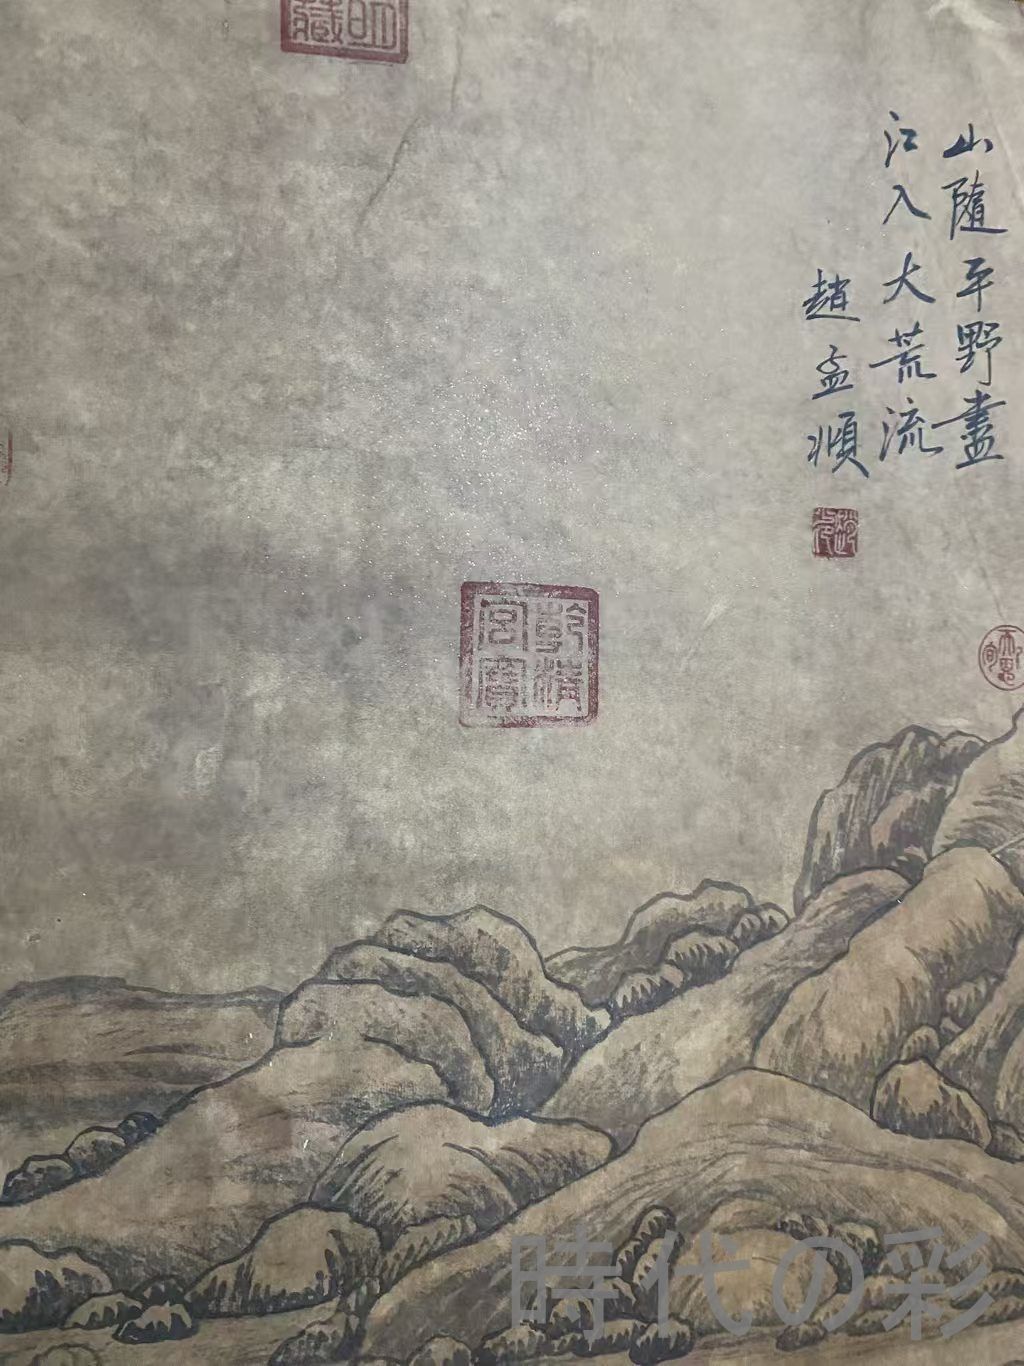 山隨平野盡
江入大荒流
趙孟頫
乾清宮寶
時代の彩